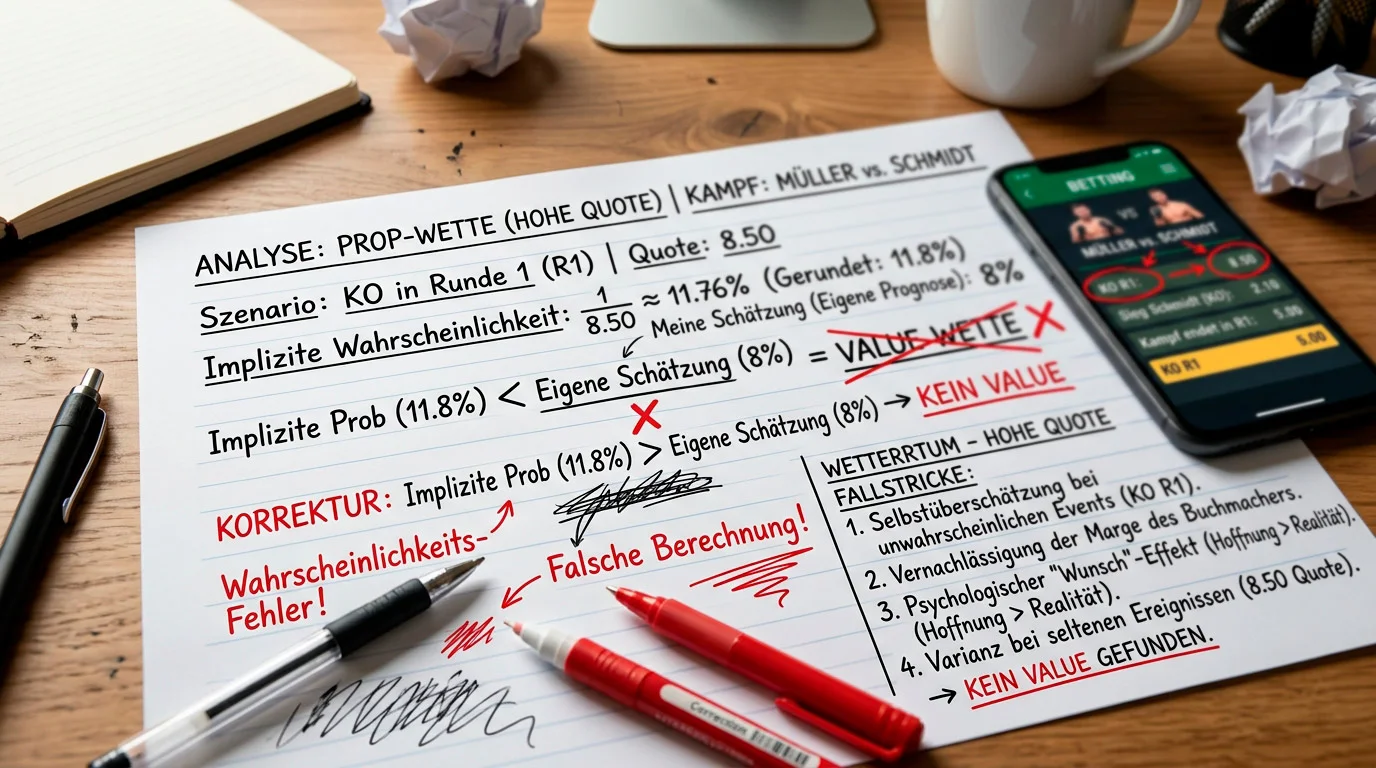 ANALYSE: PROP-WETTE (HOHE QUOTE) | KAMPF: MÜLLER vs. SCHMIDT
Szenario: KO in Runde 1 (R1) | Quote: 8.50
Implizite Wahrscheinlichkeit: 1/8.50 ≈ 11.76% (Gerundet: 11.8%)
Meine Schätzung (Eigene Prognose): 8%
Implizite Prob (11.8%) < Eigene Schätzung (8%) = VALUE WETTE X
X
KORREKTUR: Implizite Prob (11.8%) > Eigene Schätzung (8%) → KEIN VALUE
Wahrscheinlichkeits-
Fehler!
Falsche Berechnung!
WETTERRTUM – HOHE QUOTE
FALLSTRICKE:
1. Selbstüberschätzung bei
unwahrscheinlichen Events (KO R1).
2. Vernachlässigung der Marge des Buchmachers.
3. Psychologischer "Wunsch"-Effekt (Hoffnung > Realität).
(Hoffnung > Realität).
4. Varianz bei seltenen Ereignissen (8.50 Quote).
→ KEIN VALUE GEFUNDEN.
BETTING
VS
MÜLLER vs. SCHMIDT
KO R1: 8.50
Schmidt (KO): 2.10
Kampf endet in R1: 5.00
KO R1 5.00
Correction